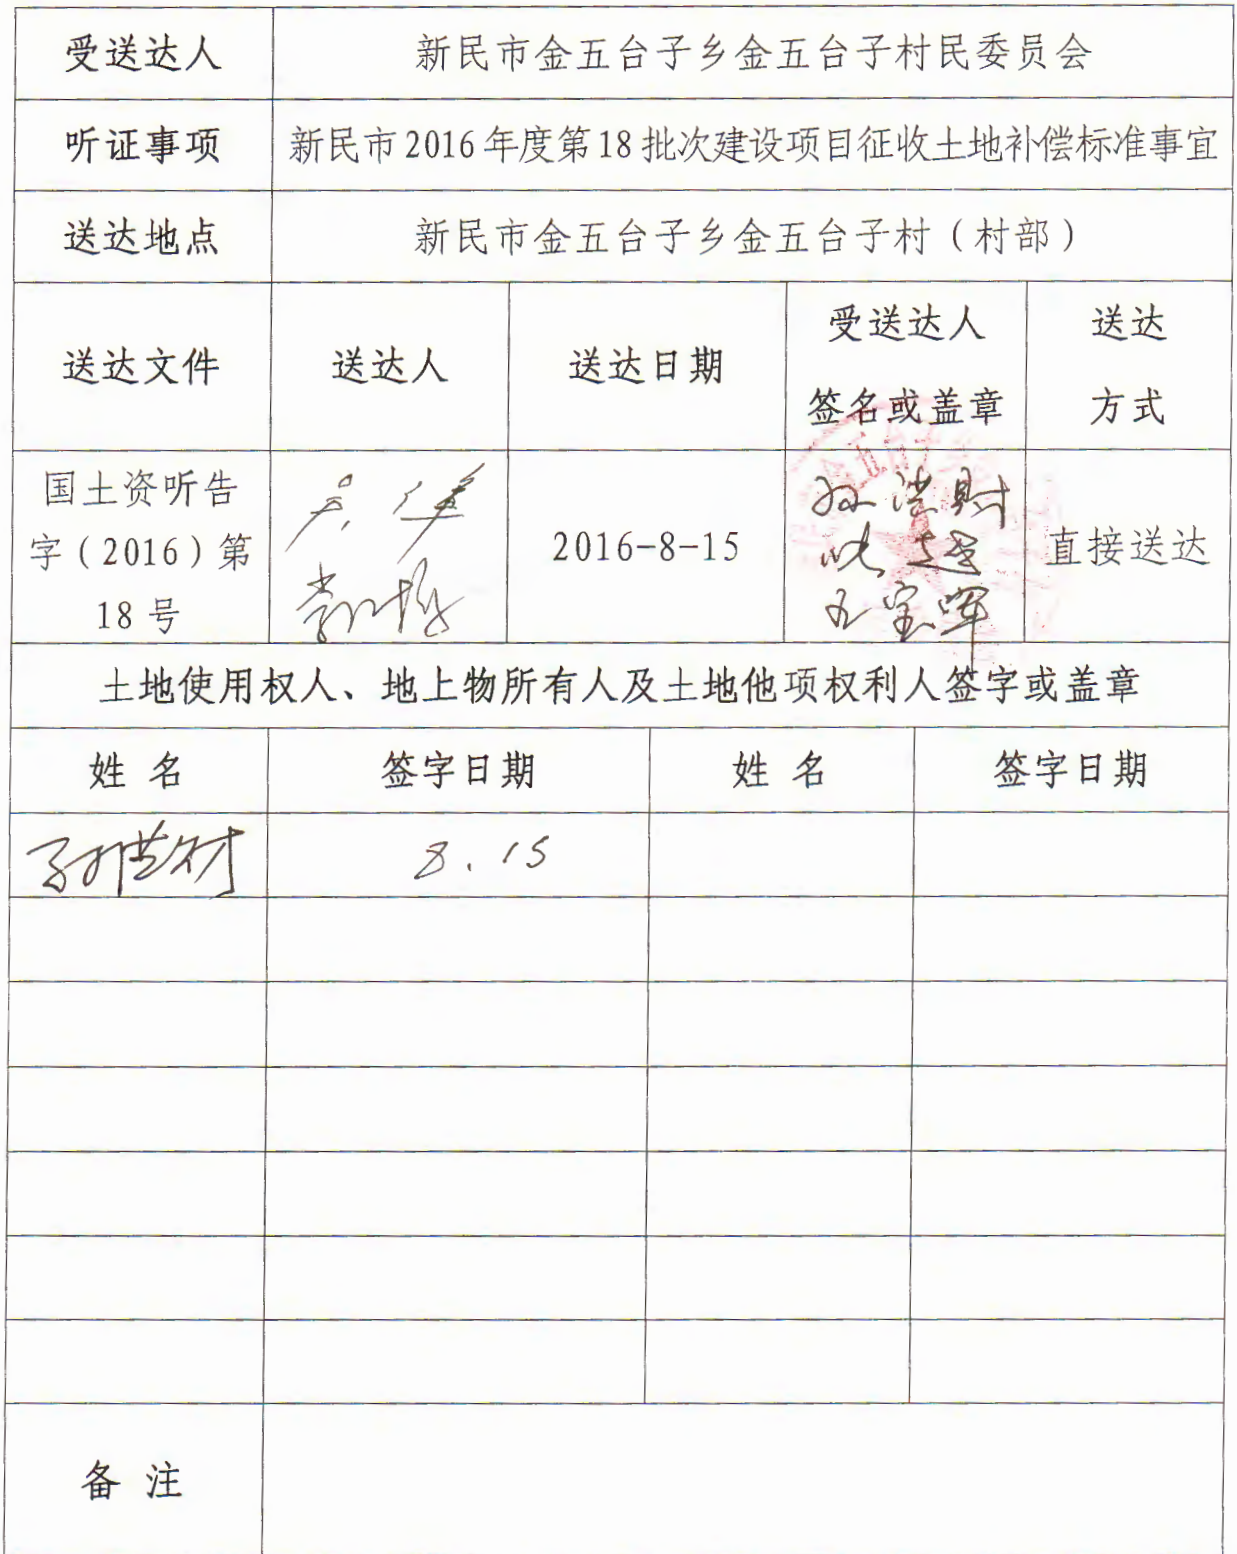 受送达人 新民市金五台子乡金五台子村民委员会
听证事项 新民市2016年度第18批次建设项目征收土地补偿标准事宜
送达地点 新民市金五台子乡金五台子村（村部）
送达文件 送达人 送达日期 受送达人 签名或盖章 送达 方式
国土资听告
字（2016）第
18号
2016-8-15
直接送达
土地使用权人、地上物所有人及土地他项权利人签字或盖章
姓名 签字日期 姓名 签字日期
8.15
备注